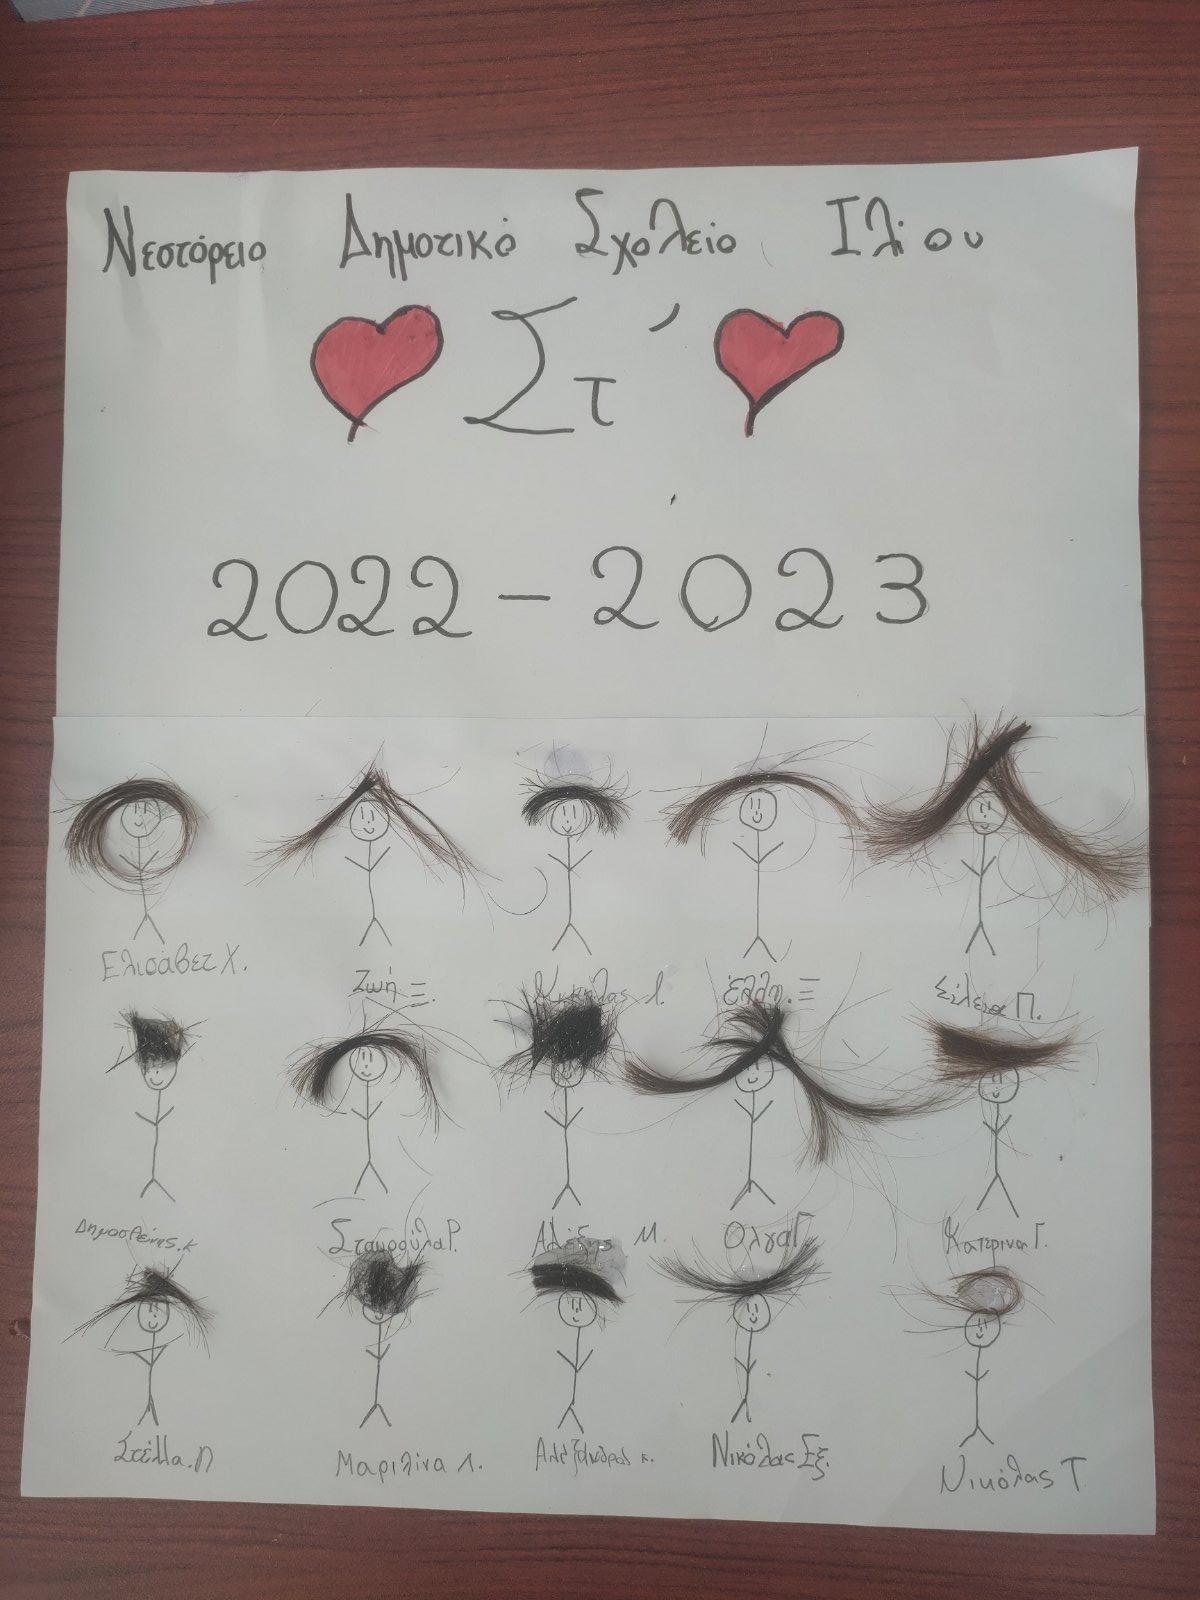 Νεστόρειο Δημοτικό Σχολείο Ιλίου
Στ'
2022-2023
Ελισάβετ Χ.
Ζωή Ξ.
Έλλη.Ξ
Π.
Δημοσθένης.Κ
Σταυρούλα Ρ.
Αλέξης Μ.
Όλγα Γ
Κατερίνα Γ.
Στέλλα.Π
Μαριλίνα Λ.
Αλέξανδρος κ.
Νικόλας Σξ.
Νικόλας Τ